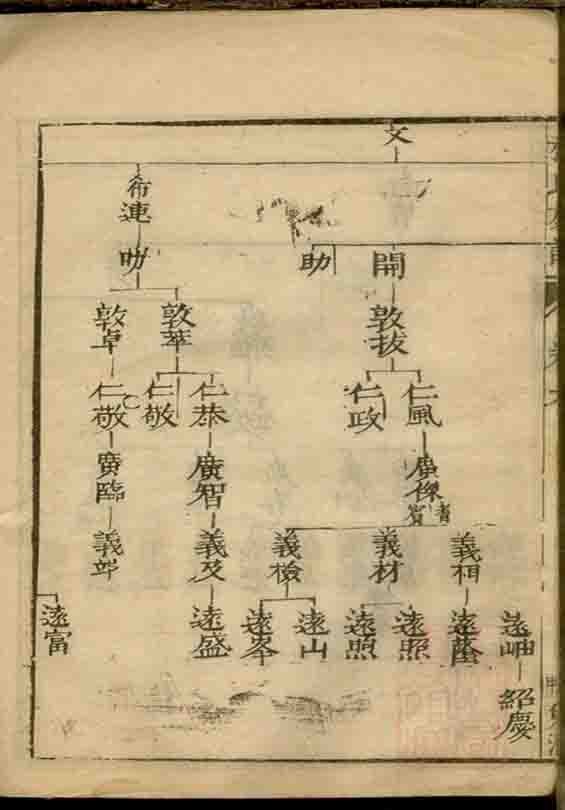 文
遠岫
紹慶
開
敦拔
仁風
廣傑
義相
遠蔭
義材
遠照
遠煦
義檢
遠山
遠峯
仁政
助
希連
敦萃
仁恭
廣智
義及
遠盛
仁敬
敦卓
仁敬
廣臨
遠富